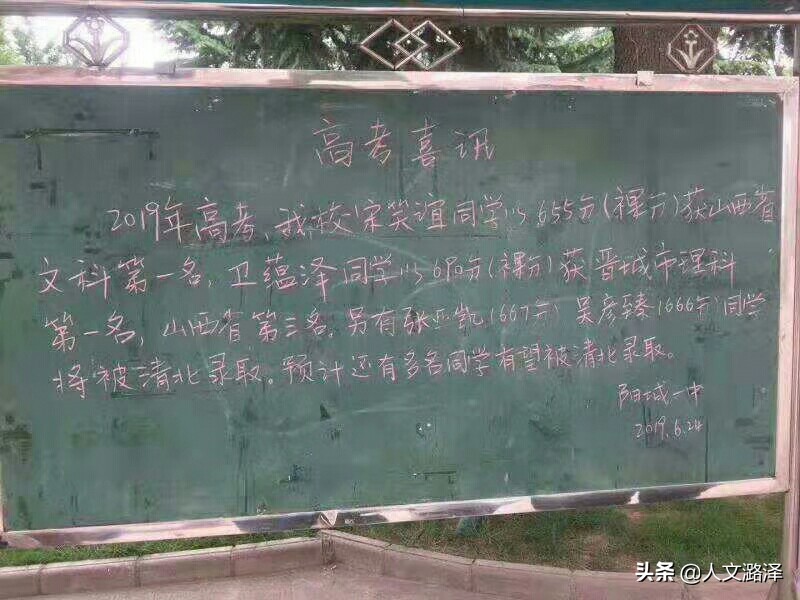 高考喜讯
2019年高考，我校宋笑谊同学以655分(裸分)获山西省
文科第一名，卫蕴泽同学以690分(裸分)获晋城市理科
第一名，山西省第三名。另有张亚凯(667分) 吴彦臻(666分)同学
将被清北录取。预计还有多名同学有望被清北录取。
阳城一中
2019.6.24
头条 @人文潞泽